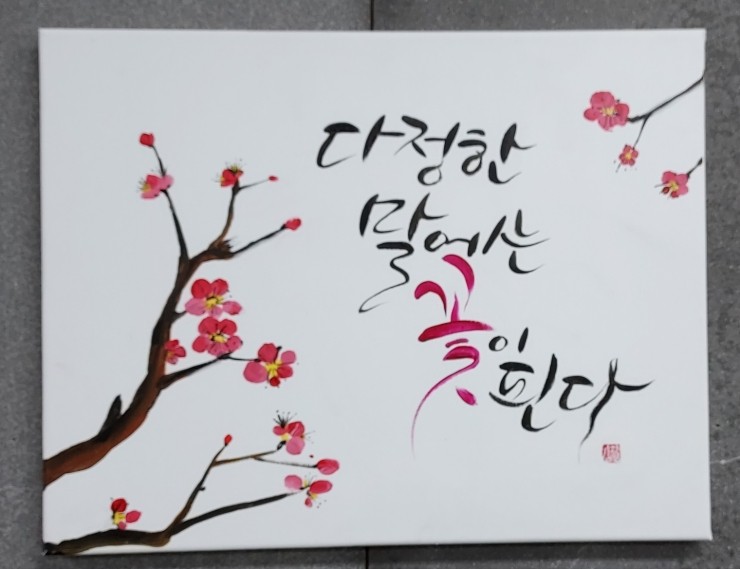 다정한
말에는
꽃이 핀다